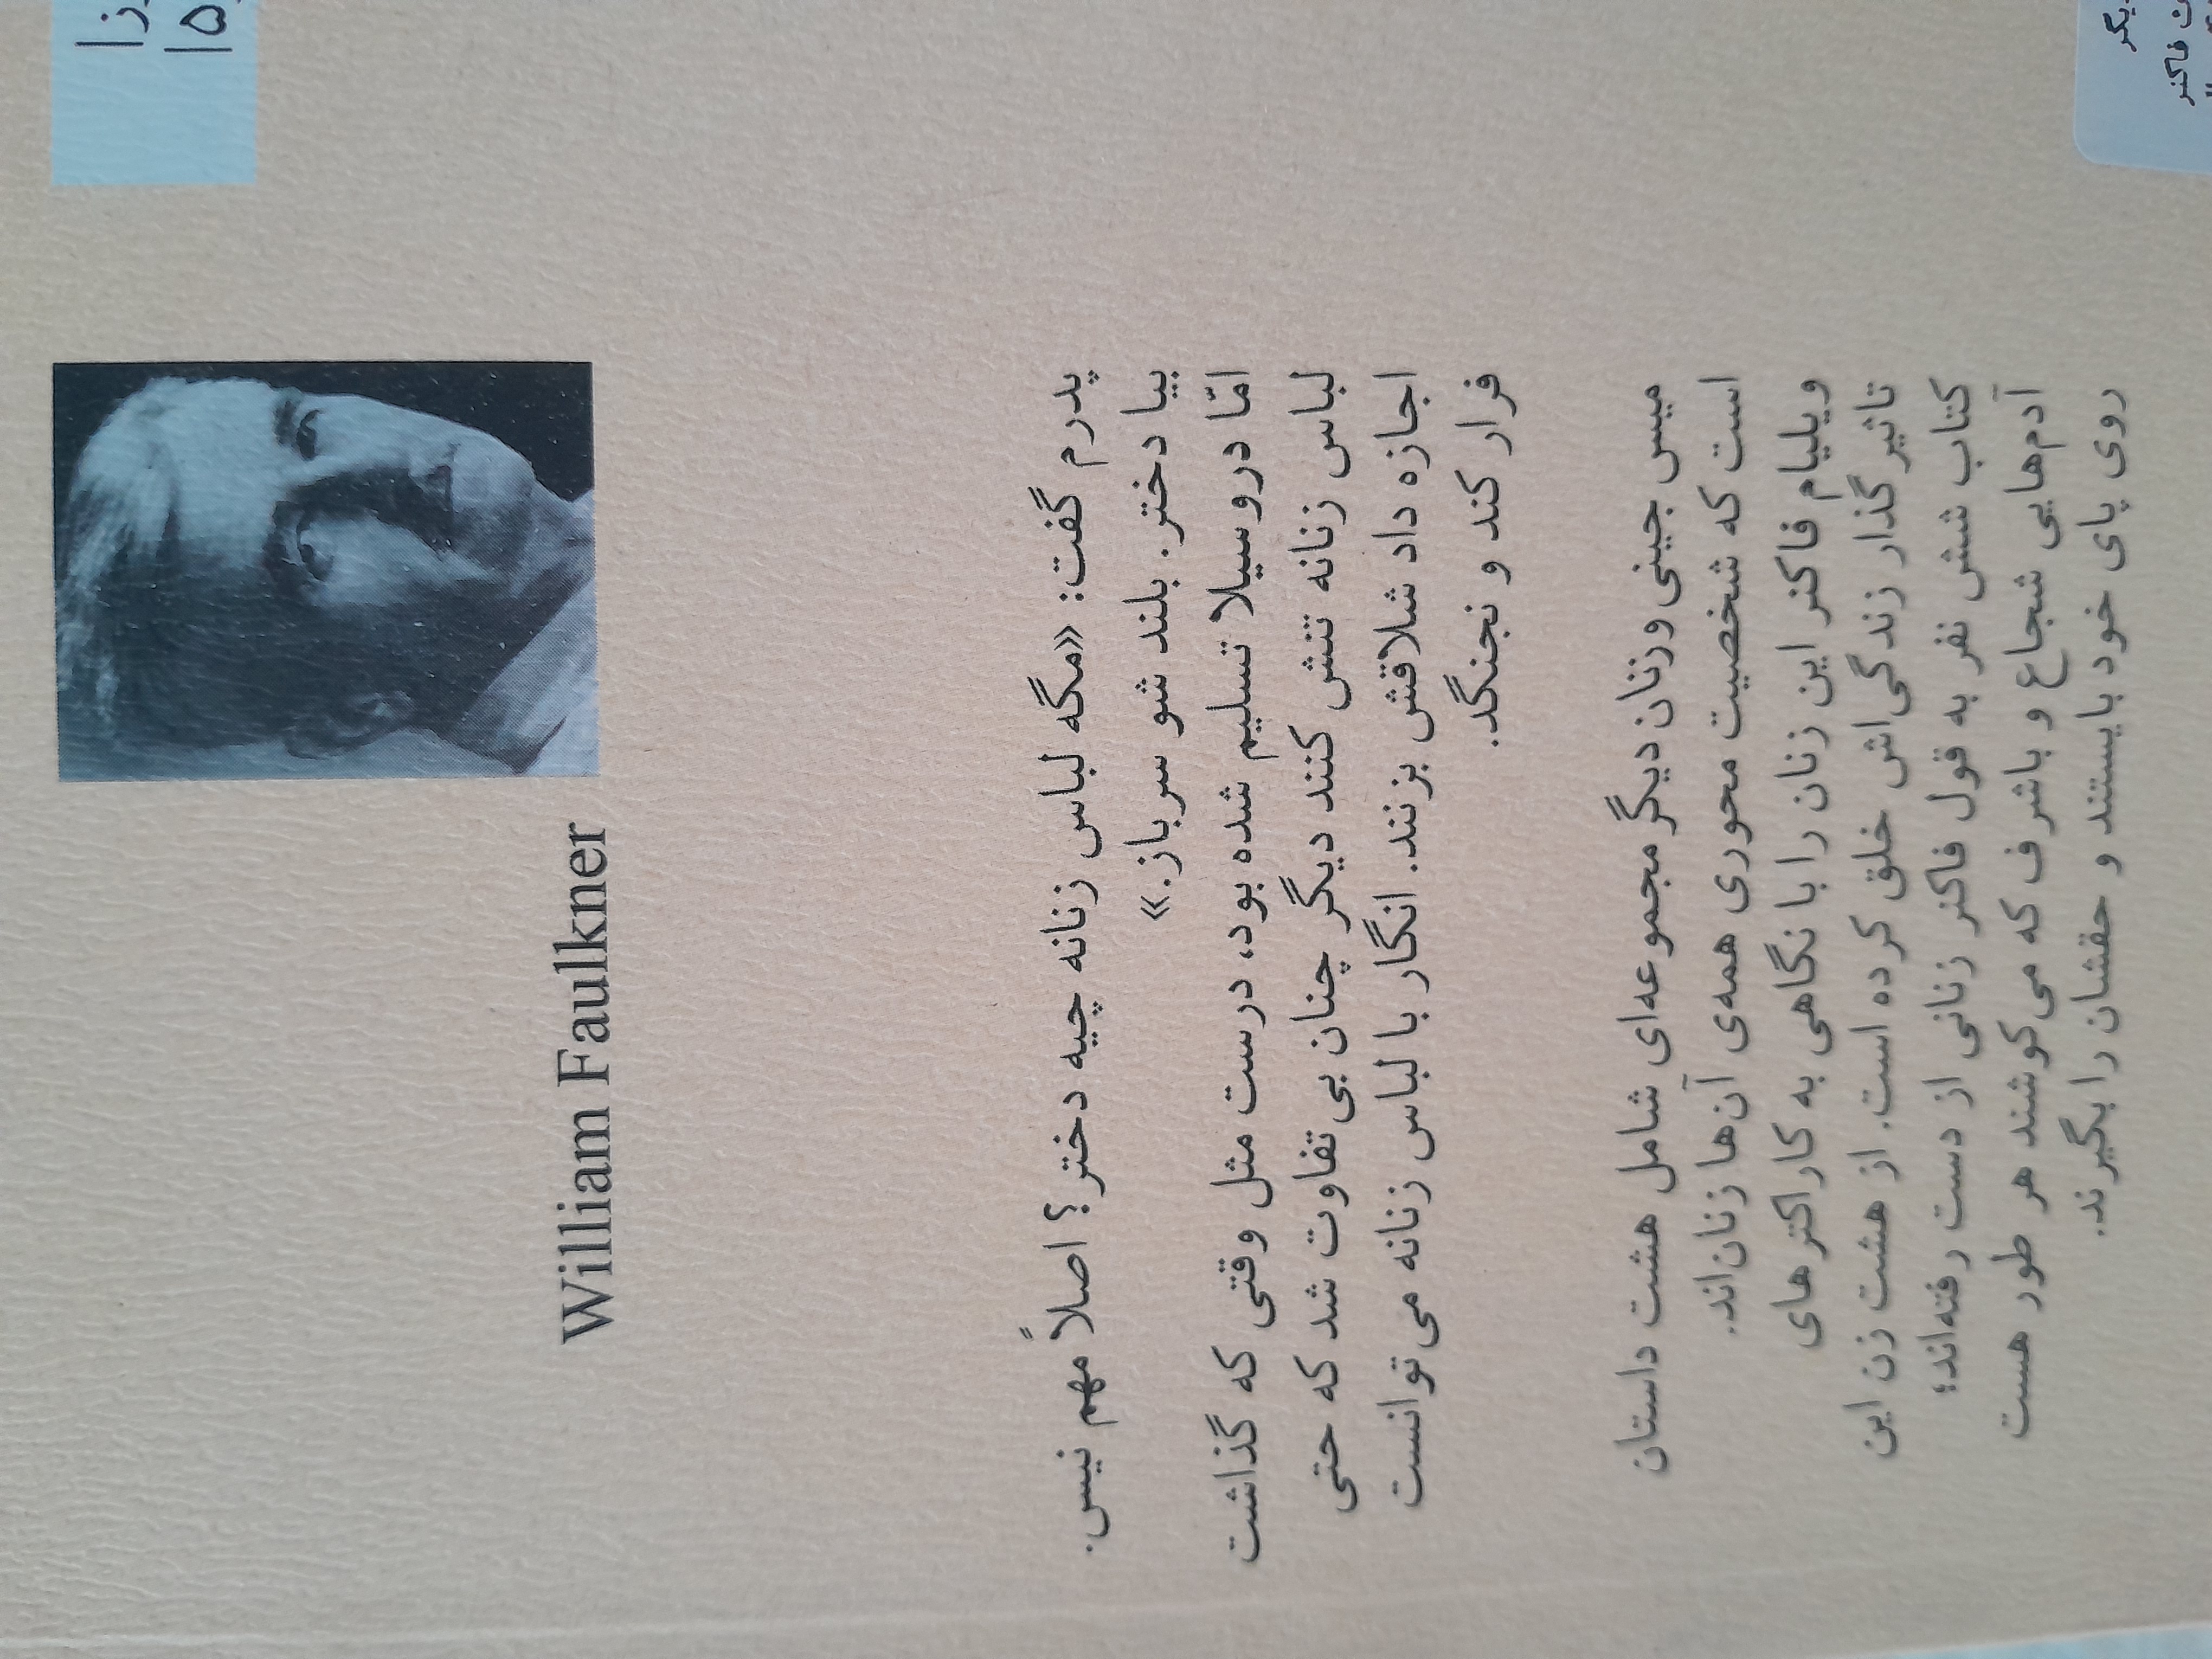 William Faulkner
پدرم گفت: «مگه لباس زنانه چیه دختر؟ اصلاً مهم نیس.
بیا دختر. بلند شو سرباز.»
امّا دروسیلا تسلیم شده بود، درست مثل وقتی که گذاشت
لباس زنانه تنش کنند دیگر چنان بی‌تفاوت شد که حتی
اجازه داد شلاقش بزنند. انگار با لباس زنانه می‌توانست
فرار کند و نجنگد.
میس جینی و زنان دیگر مجموعه‌ای شامل هشت داستان
است که شخصیت محوری همه‌ی آن‌ها زنان‌اند.
ویلیام فاکنر این زنان را با نگاهی به کاراکترهای
تاثیرگذار زندگی‌اش خلق کرده است. از هشت زن این
کتاب شش نفر به قول فاکنر زنانی از دست رفته‌اند؛
آدم‌هایی شجاع و باشرف که می‌کوشند هر طور هست
روی پای خود بایستند و حقشان را بگیرند.